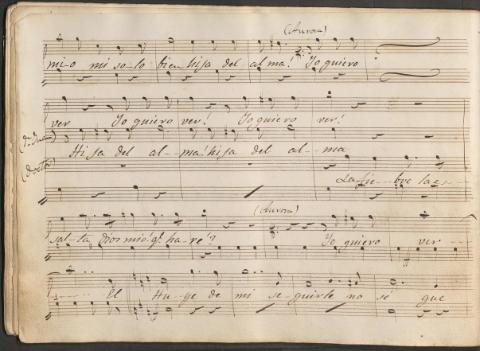 (Aurora)
mi-o mi so-lo bien hija del alma! Yo quiero
ver Yo quiero ver! Yo quiero ver!
Hija del al-ma! hija del al--ma
La fie--bre la
sal-ta Dios mio! q.e ha-ré?
(Aurora)
Yo quiero ver
El Hu-ye de mi se-guirle no sé que